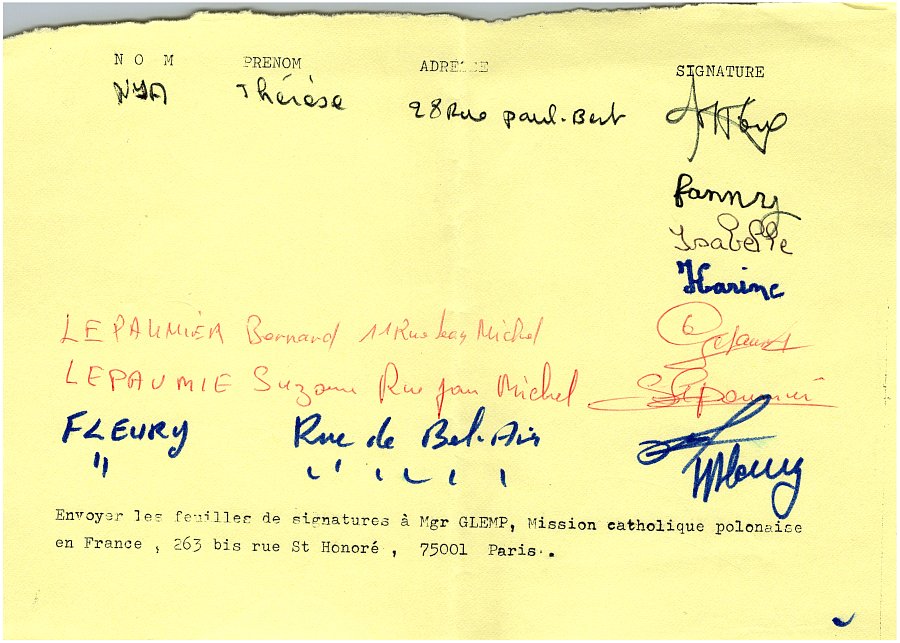 NOM PRENOM ADRESSE SIGNATURE
NYA Thérèse 28 Rue paul-Bert
Fanny
Isabelle
Karine
LEPAUMIER Bernard 11 Rue Jean Michel
LEPAUMIE Suzanne Rue Jean Michel
FLEURY Rue de Bel-Air
" " " " "
Envoyer les feuilles de signatures à Mgr GLEMP, Mission catholique polonaise
en France , 263 bis rue St Honoré , 75001 Paris .